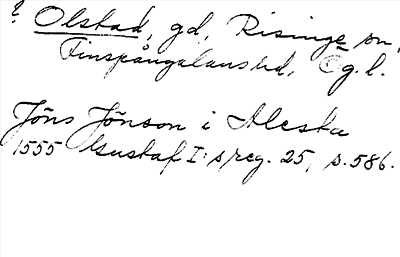 ? Olstad, gd, Risinge sn,
Finspångalänshd, Ög.l.
Jöns Jönson i Aleska
1555 Gustaf I:s reg. 25, s. 586.